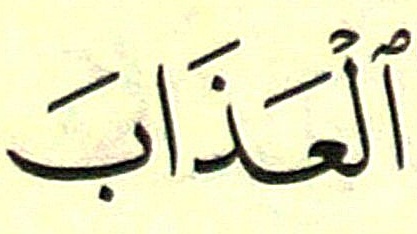 ٱلْعَذَابَ